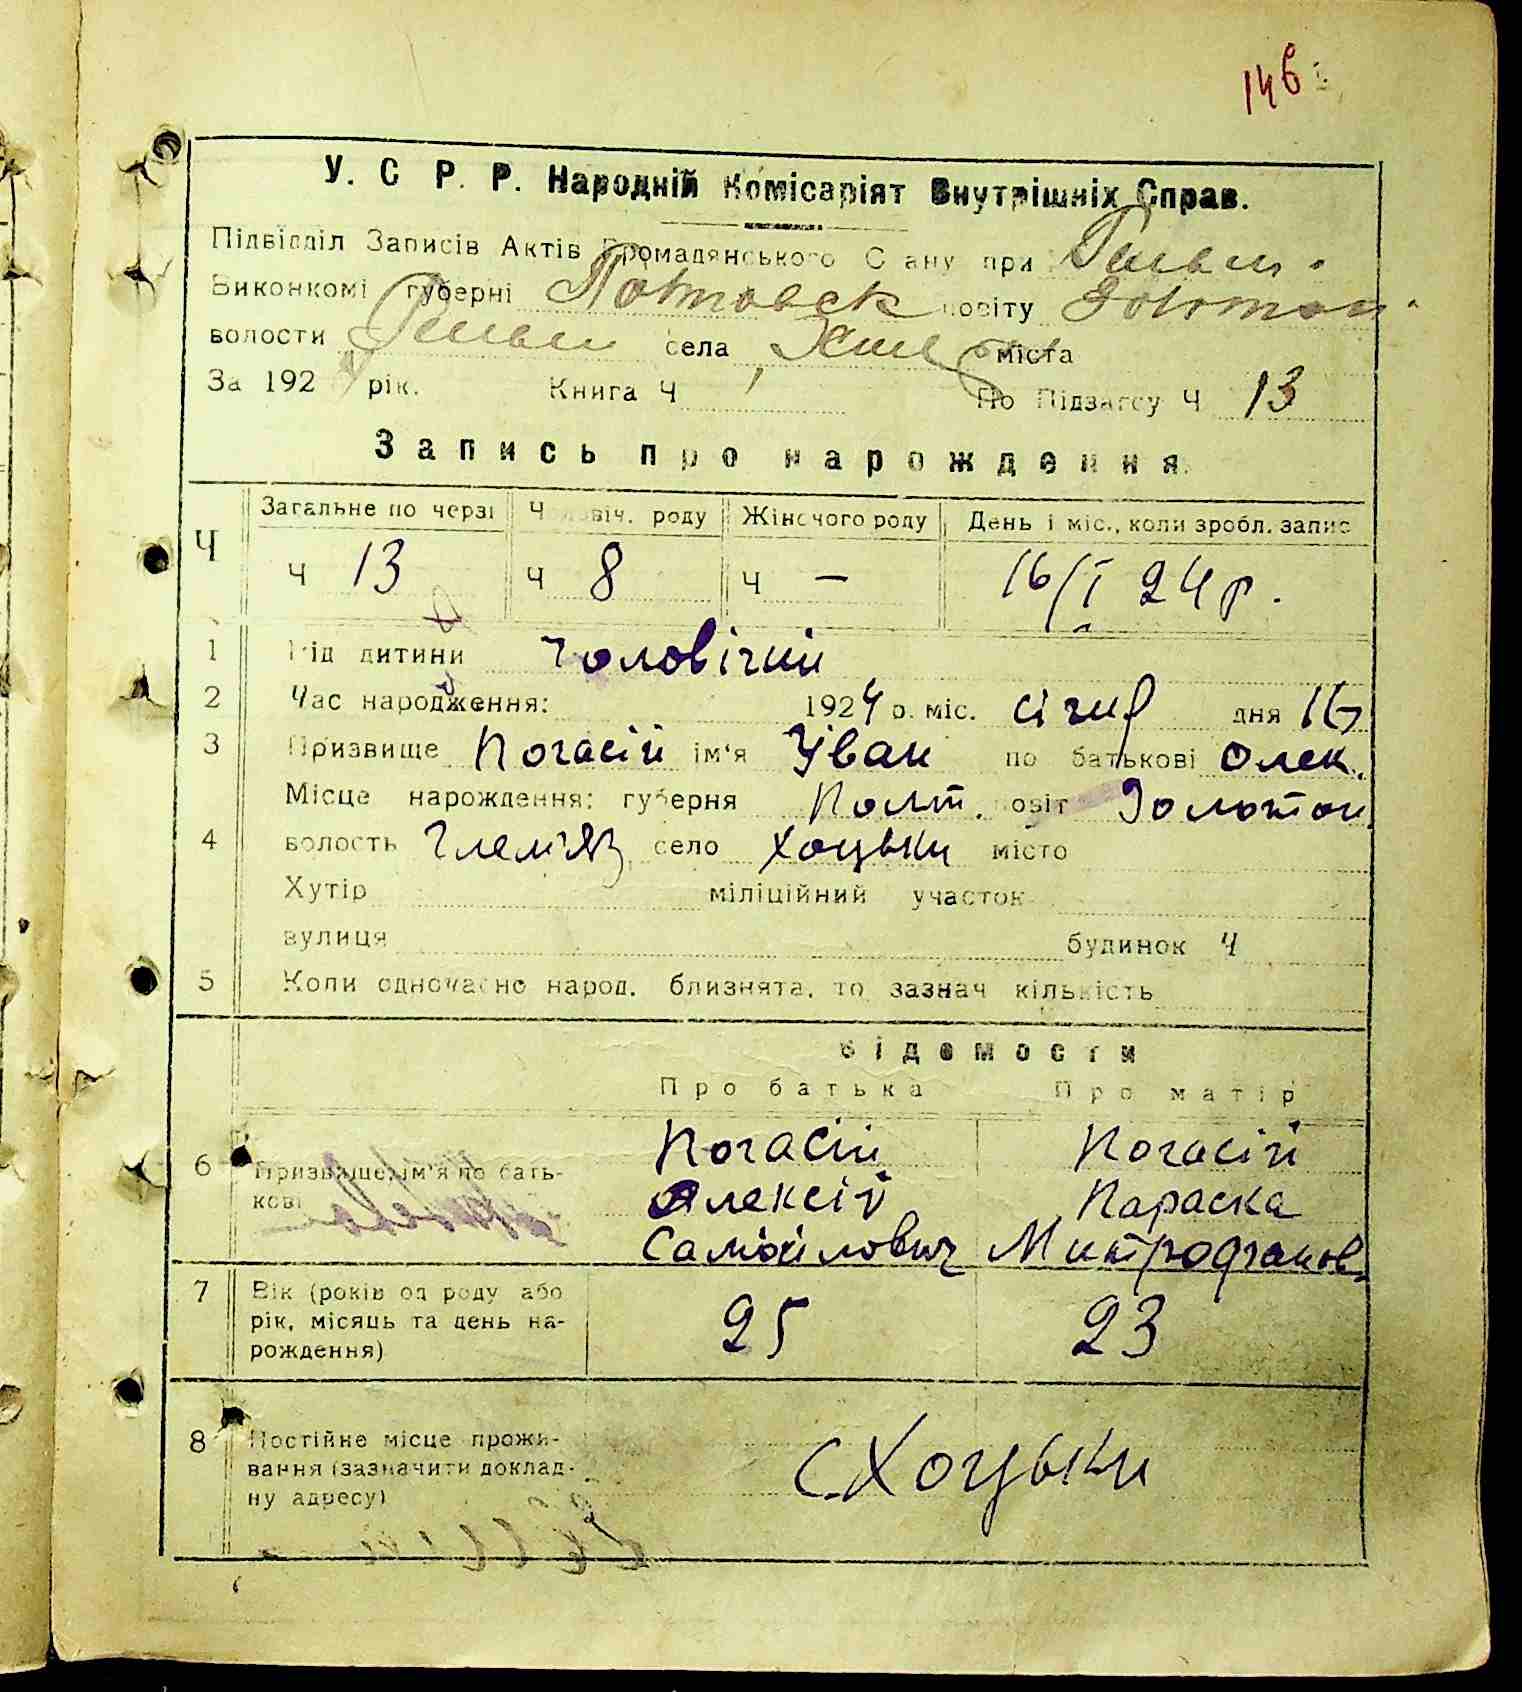 146
У. С Р. Р. Народній Комісаріят Внутрішніх Справ.
Підвідділ Записів Актів Громадянського Стану при
Виконкомі губерні повіту Золотон.
волости села міста
За 1924 рік. Книга Ч 1 По Підзагсу Ч 13
Запись про народження.
Ч Загальне по черзі Чоловіч. роду Жіночого роду День і міс., коли зробл. запис
Ч 13 Ч 8 Ч — 16/I 24 р.
1 Рід дитини чоловічий
2 Час народження: 1924 р. міс. січня дня 16
3 Призвище Погасій ім'я Іван по батькові Олек.
Місце нарождення: губерня Полт. повіт Золотон.
4 волость Гельм'яз село Хоцьки місто
Хутір міліційний участок
вулиця будинок Ч
5 Коли одночасно народ. близнята, то зазнач кількість
Відомости
Про батька Про матір
6 Призвище, ім'я по бать-
кові
Погасій Погасій
Алексій Параска
Самойлович Митрофанов.
7 Вік (років од роду або
рік, місяць та день на-
рождення)
25 23
8 Постійне місце прожи-
вання (зазначити доклад-
ну адресу)
с. Хоцьки